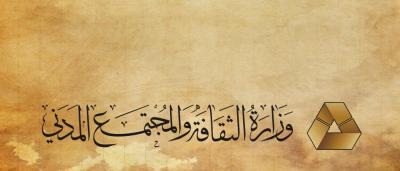 وزارة الثقافة والمجتمع المدني